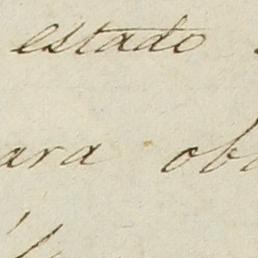 estado
ara ob